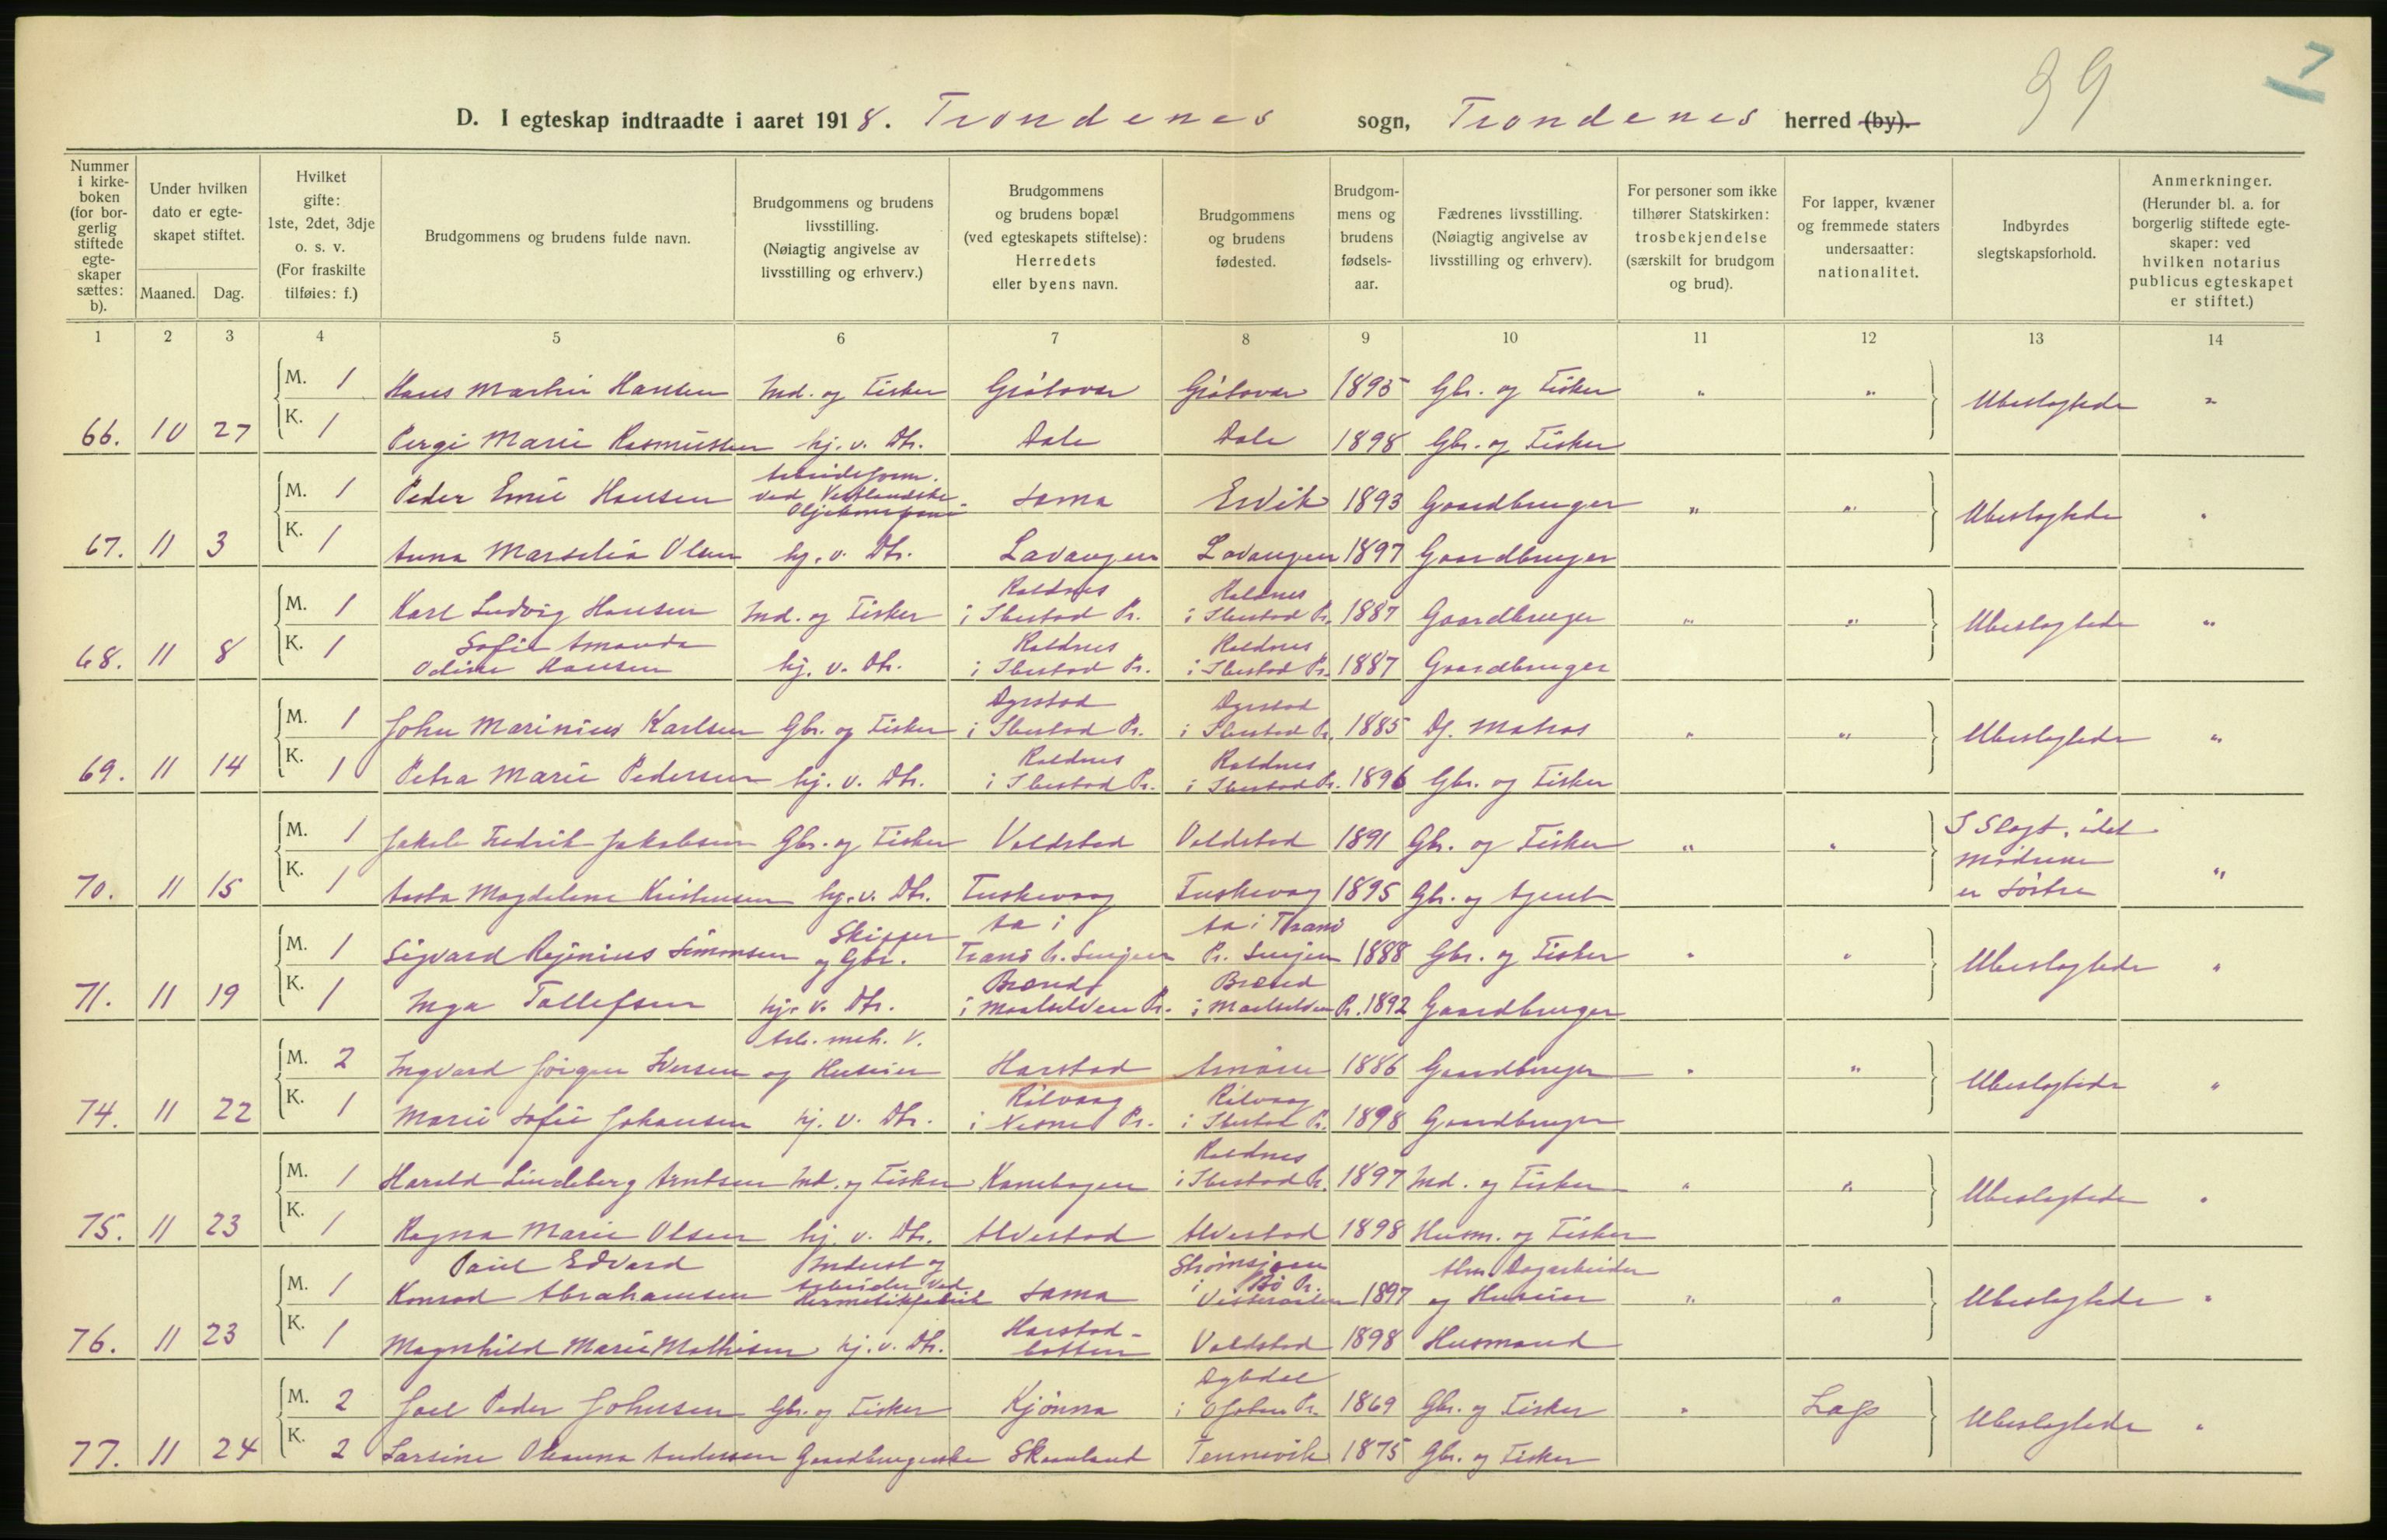 39
7
D. I egteskap indtraadte i aaret 1918. Trondenes sogn, Trondenes herred (by).
Nummer i kirkeboken (for borgerlig stiftede egteskaper sættes: b).
Under hvilken dato er egteskapet stiftet.
Maaned. Dag.
Hvilket gifte: 1ste, 2det, 3dje o. s. v. (For fraskilte tilføies: f.)
Brudgommens og brudens fulde navn.
Brudgommens og brudens livsstilling. (Nøiagtig angivelse av livsstilling og erhverv.)
Brudgommens og brudens bopæl (ved egteskapets stiftelse): Herredets eller byens navn.
Brudgommens og brudens fødested.
Brudgommens og brudens fødselsaar.
Fædrenes livsstilling. (Nøiagtig angivelse av livsstilling og erhverv).
For personer som ikke tilhører Statskirken: trosbekjendelse (særskilt for brudgom og brud).
For lapper, kvæner og fremmede staters undersaatter: nationalitet.
Indbyrdes slegtskapsforhold.
Anmerkninger. (Herunder bl. a. for borgerlig stiftede egteskaper: ved hvilken notarius publicus egteskapet er stiftet.)
1 2 3 4 5 6 7 8 9 10 11 12 13 14
M. 1 Hans Martin Hansen Ind. og Fisker Grøtavær Grøtavær 1895 Gbr. og Fisker " " Ubeslegtede "
66. 10 27 K. 1 Marie Rasmussen hj. v. Dtr. Dale Dale 1898 Gbr. og Fisker
M. 1 Peder Emil Hansen Arbeidsform. ved Vestlandske Oljekompani Sama Ervik 1893 Gaardbruger " " Ubeslegtede "
67. 11 3 K. 1 Anna Marselia Olsen hj. v. Dtr. Lavangen Lavangen 1897 Gaardbruger
M. 1 Karl Ludvig Hansen Ind. og Fisker Roldnes i Ibestad Pr. Roldnes i Ibestad Pr. 1887 Gaardbruger " " Ubeslegtede "
68. 11 8 K. 1 Sofie Amanda Odine Hansen hj. v. Dtr. Roldnes i Ibestad Pr. Roldnes i Ibestad Pr. 1887 Gaardbruger
M. 1 John Marinius Karlsen Gbr. og Fisker Dyrstad i Ibestad Pr. Dyrstad i Ibestad Pr. 1885 Matros " " Ubeslegtede "
69. 11 14 K. 1 Petra Marie Pedersen hj. v. Dtr. Roldnes i Ibestad Pr. Roldnes i Ibestad Pr. 1896 Gbr. og Fisker
M. 1 Jakob Fredrik Jakobsen Gbr. og Fisker Voldstad Voldstad 1891 Gbr. og Fisker " " I Slegt, idet mødrene er søstre "
70. 11 15 K. 1 Aasta Magdalene Kristensen hj. v. Dtr. Fuskevaag Fuskevaag 1895 Gbr. og Agent
M. 1 Sigvard Rejinius Simonsen Skipper og Gbr. Aa i Tranø Pr. Senjen Aa i Tranø Pr. Senjen 1888 Gbr. og Fisker " " Ubeslegtede "
71. 11 19 K. 1 Inga Tollefsen hj. v. Dtr. Brænd i Maalselven Pr. Brænd i Maalselven Pr. 1892 Gaardbruger
M. 2 Ingvard Jørgen Iversen Arb. mek. V. og Huseier Harstad 1886 Gaardbruger " " Ubeslegtede "
74. 11 22 K. 1 Marie Sofie Johansen hj. v. Dtr. Rølvaag i Nesne Pr. Rølvaag i Ibestad Pr. 1898 Gaardbruger
M. 1 Harald Lindeberg Arntsen Ind. og Fisker Kanebogen Roldnes i Ibestad Pr. 1897 Ind. og Fisker " " Ubeslegtede "
75. 11 23 K. 1 Ragna Marie Olsen hj. v. Dtr. Alvestad Alvestad 1898 Husm. og Fisker
M. 1 Paul Edvard Konrad Abrahamsen Inderst og Arbeider ved Hermetikfabrik Sama Strømsjøen i Bø Pr. Vesteraalen 1897 Alm. Dagarbeider og Huseier " " Ubeslegtede "
76. 11 23 K. 1 Magnhild Marie Mathisen hj. v. Dtr. Harstad-botten Voldstad 1898 Husmand
M. 2 Joel Peder Johnsen Gbr. og Fisker Kjønna i Ofoten Pr. 1869 Gbr. og Fisker " Lap Ubeslegtede "
77. 11 24 K. 2 Larsine Oleanna Andersen Gaardbrugerske Skaanland Tennevik 1875 Gbr. og Fisker